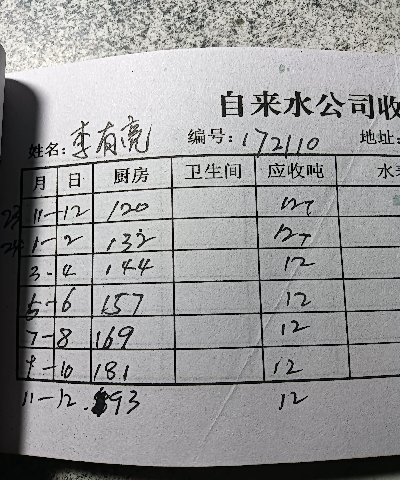 自来水公司收
姓名: 李有亮 编号: 172110 地址:
月 日 厨房 卫生间 应收吨 水
23 11-12 120 12T
24 1-2 132 12T
3-4 144 12
5-6 157 12
7-8 169 12
9-10 181 12
11-12 193 12